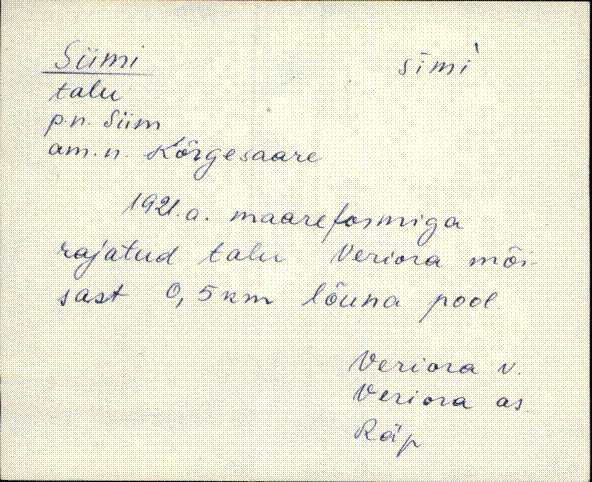 Siimi sīmì
talu
p.n. Siim
am.n. Kõrgesaare
1921.a. maareformiga
rajatud talu Veriora mõi-
sast 0,5 km lõuna pool
Veriora v.
Veriora as.
Räp